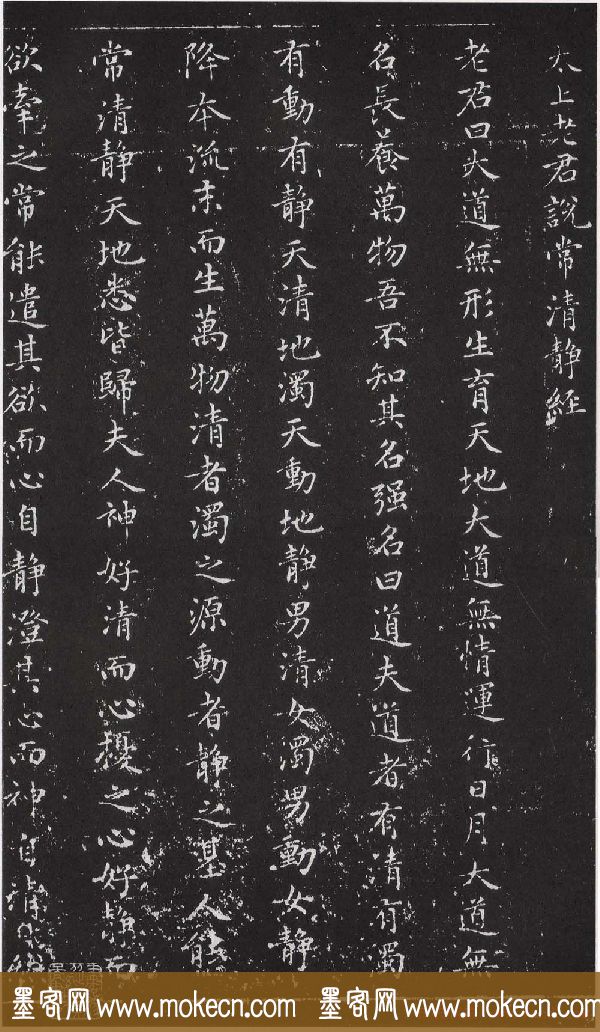 太上老君說常清靜經
老君曰大道無形生育天地大道無情運行日月大道無
名長養萬物吾不知其名强名曰道夫道者有清有濁
有動有靜天清地濁天動地靜男清女濁男動女靜
降本流末而生萬物清者濁之源動者靜之基人能
常清靜天地悉皆歸夫人神好清而心擾之心好靜而
欲牽之常能遣其欲而心自靜澄其心而神自清
墨客网 www.mokecn.com 墨客网 www.mokecn.com